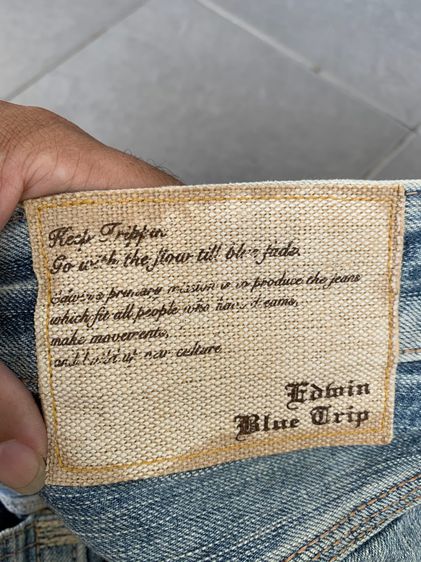 Keep Trippin
Go with the flow till blue fade.
Edwin's primary mission is to produce the jeans
which fit all people who have dreams,
make movements,
and build up new culture
Edwin
Blue Trip